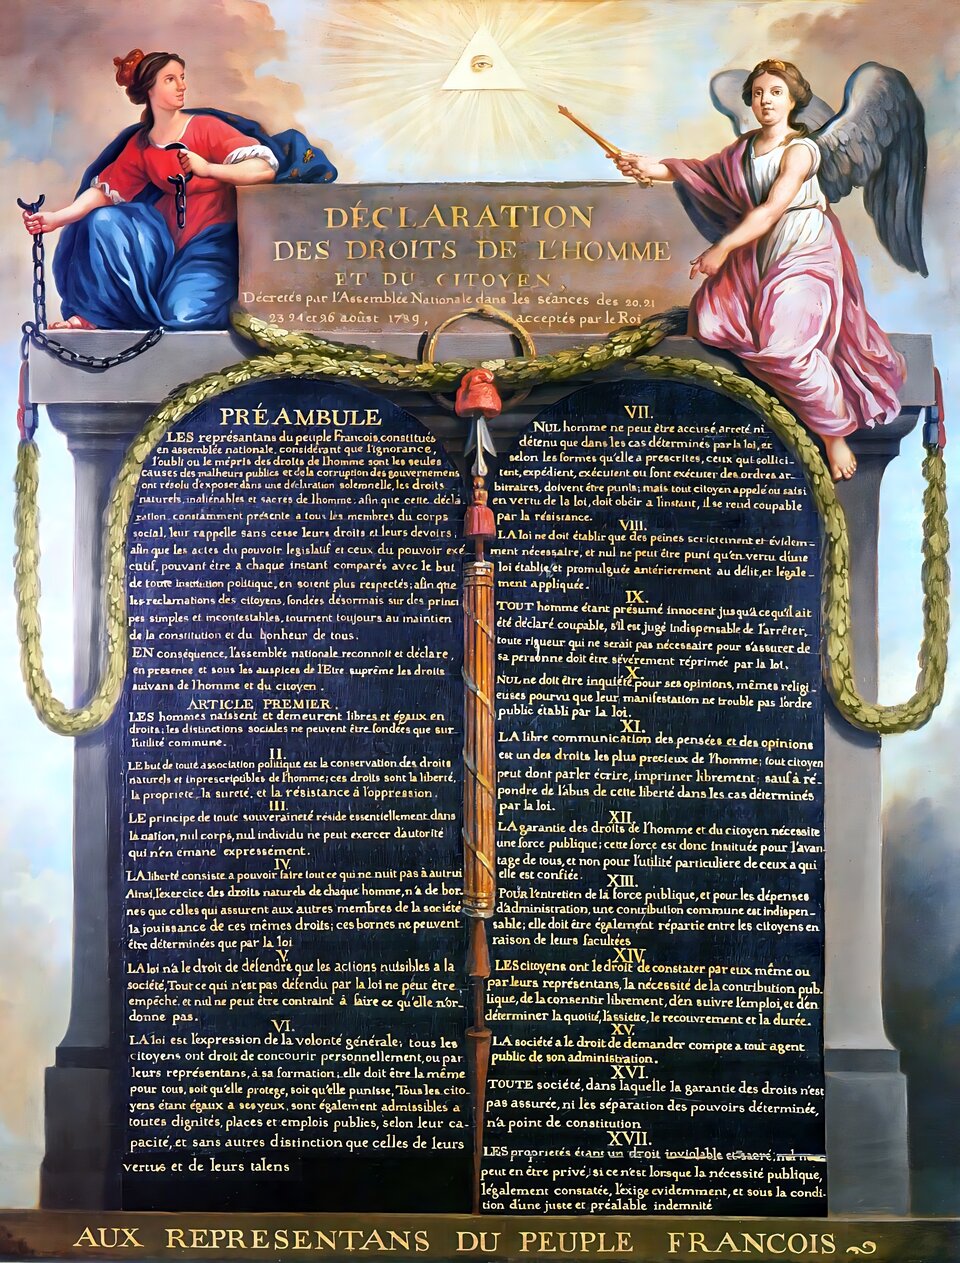 DÉCLARATION
DES DROITS DE L'HOMME
ET DU CITOYEN,
Décretés par l'Assemblée Nationale dans les séances des 20, 21
23 24 et 26 août 1789, acceptés par le Roi
PRÉAMBULE
LES représantans du peuple Francois, constitués
en assemblée nationale, considérant que l'ignorance,
l'oubli ou le mépris des droits de l'homme sont les seules
causes des malheurs publics et de la corruption des gouvernemens
ont résolu d'exposer dans une déclaration solemnelle, les droits
naturels, inaliénables et sacrés de l'homme; afin que cette décla
ration, constamment présente a tous les membres du corps
social, leur rappelle sans cesse leurs droits et leurs devoirs,
afin que les actes du pouvoir legislatif et ceux du pouvoir exé
cutif, pouvant être a chaque instant comparés avec le but
de toute institution politique, en soient plus respectés; afin que
les reclamations des citoyens, fondées désormais sur des princi
pes simples et incontestables, tournent toujours au maintien
de la constitution et du bonheur de tous.
EN conséquence, l'assemblée nationale reconnoit et déclare,
en presence et sous les auspices de l'Etre suprême les droits
suivans de l'homme et du citoyen.
ARTICLE PREMIER.
LES hommes naissent et demeurent libres et égaux en
droits; les distinctions sociales ne peuvent être fondées que sur
l'utilité commune.
II.
LE but de toute association politique est la conservation des droits
naturels et inprescriptibles de l'homme; ces droits sont la liberté,
la propriete, la sureté, et la résistance à l'oppression.
III.
LE principe de toute souveraineté réside essentiellement dans
la nation, nul corps, nul individu ne peut exercer d'autorité
qui n'en émane expressément.
IV.
LA liberté consiste a pouvoir faire tout ce qui ne nuit pas à autrui
Ainsi, l'exercice des droits naturels de chaque homme, n'a de bor-
nes que celles qui assurent aux autres membres de la société
la jouissance de ces mêmes droits; ces bornes ne peuvent
être déterminées que par la loi
V.
LA loi n'a le droit de défendre que les actions nuisibles a la
société, Tout ce qui n'est pas défendu par la loi ne peut être
empêché, et nul ne peut être contraint à faire ce qu'elle n'or-
donne pas.
VI.
LA loi est l'expression de la volonté générale; tous les
citoyens ont droit de concourir personnellement, ou par
leurs représentans, à sa formation; elle doit être la même
pour tous, soit qu'elle protege, soit qu'elle punisse, Tous les cito-
yens étant égaux a ses yeux, sont également admissibles a
toutes dignités, places et emplois publics, selon leur ca-
pacité, et sans autres distinction que celles de leurs
vertus et de leurs talens
VII.
NUL homme ne peut être accusé, arreté, ni
détenu que dans les cas déterminés par la loi, et
selon les formes qu'elle a prescrites, ceux qui sollici-
tent, expédient, exécutent ou font exécuter des ordres ar-
bitraires, doivent être punis; mais tout citoyen appelé ou saisi
en vertu de la loi, doit obéir a l'instant, il se rend coupable
par la résistance.
VIII.
LA loi ne doit établir que des peines strictement et évidem-
ment nécessaire, et nul ne peut être puni qu'en vertu d'une
loi établie et promulguée antérierement au délit, et légale-
ment appliquée.
IX.
TOUT homme étant présumé innocent jusqu'à ce qu'il ait
été déclaré coupable, s'il est jugé indispensable de l'arrêter,
toute rigueur qui ne serait pas nécessaire pour s'assurer de
sa personne doit être sévèrement réprimée par la loi.
X.
NUL ne doit être inquiété pour ses opinions, mêmes religi-
euses pourvu que leur manifestation ne trouble pas l'ordre
public établi par la loi.
XI.
LA libre communication des pensées et des opinions
est un des droits les plus precieux de l'homme; tout citoyen
peut dont parler écrire, imprimer librement; sauf à ré-
pondre de l'abus de cette liberté dans les cas déterminés
par la loi.
XII.
LA garantie des droits de l'homme et du citoyen nécessite
une force publique; cette force est donc instituée pour l'avan-
tage de tous, et non pour l'utilité particuliere de ceux a qui
elle est confiée.
XIII.
POUR l'entretien de la force publique, et pour les dépenses
d'administration, une contribution commune est indispen-
sable; elle doit être également répartie entre les citoyens en
raison de leurs facultées
XIV.
LES citoyens ont le droit de constater par eux même ou
par leurs représentans, la nécessité de la contribution pub-
lique, de la consentir librement, d'en suivre l'emploi, et d'en
déterminer la quotité, l'assiette, le recouvrement et la durée.
XV.
LA société a le droit de demander compte a tout agent
public de son administration.
XVI.
TOUTE société, dans laquelle la garantie des droits n'est
pas assurée, ni les séparation des pouvoirs déterminée,
n'a point de constitution
XVII.
LES proprietés étant un droit inviolable et sacré, nul ne
peut en être privé, si ce n'est lorsque la nécessité publique,
légalement constatée, l'exige evidemment, et sous la condi-
tion d'une juste et préalable indemnité
AUX REPRESENTANS DU PEUPLE FRANCOIS